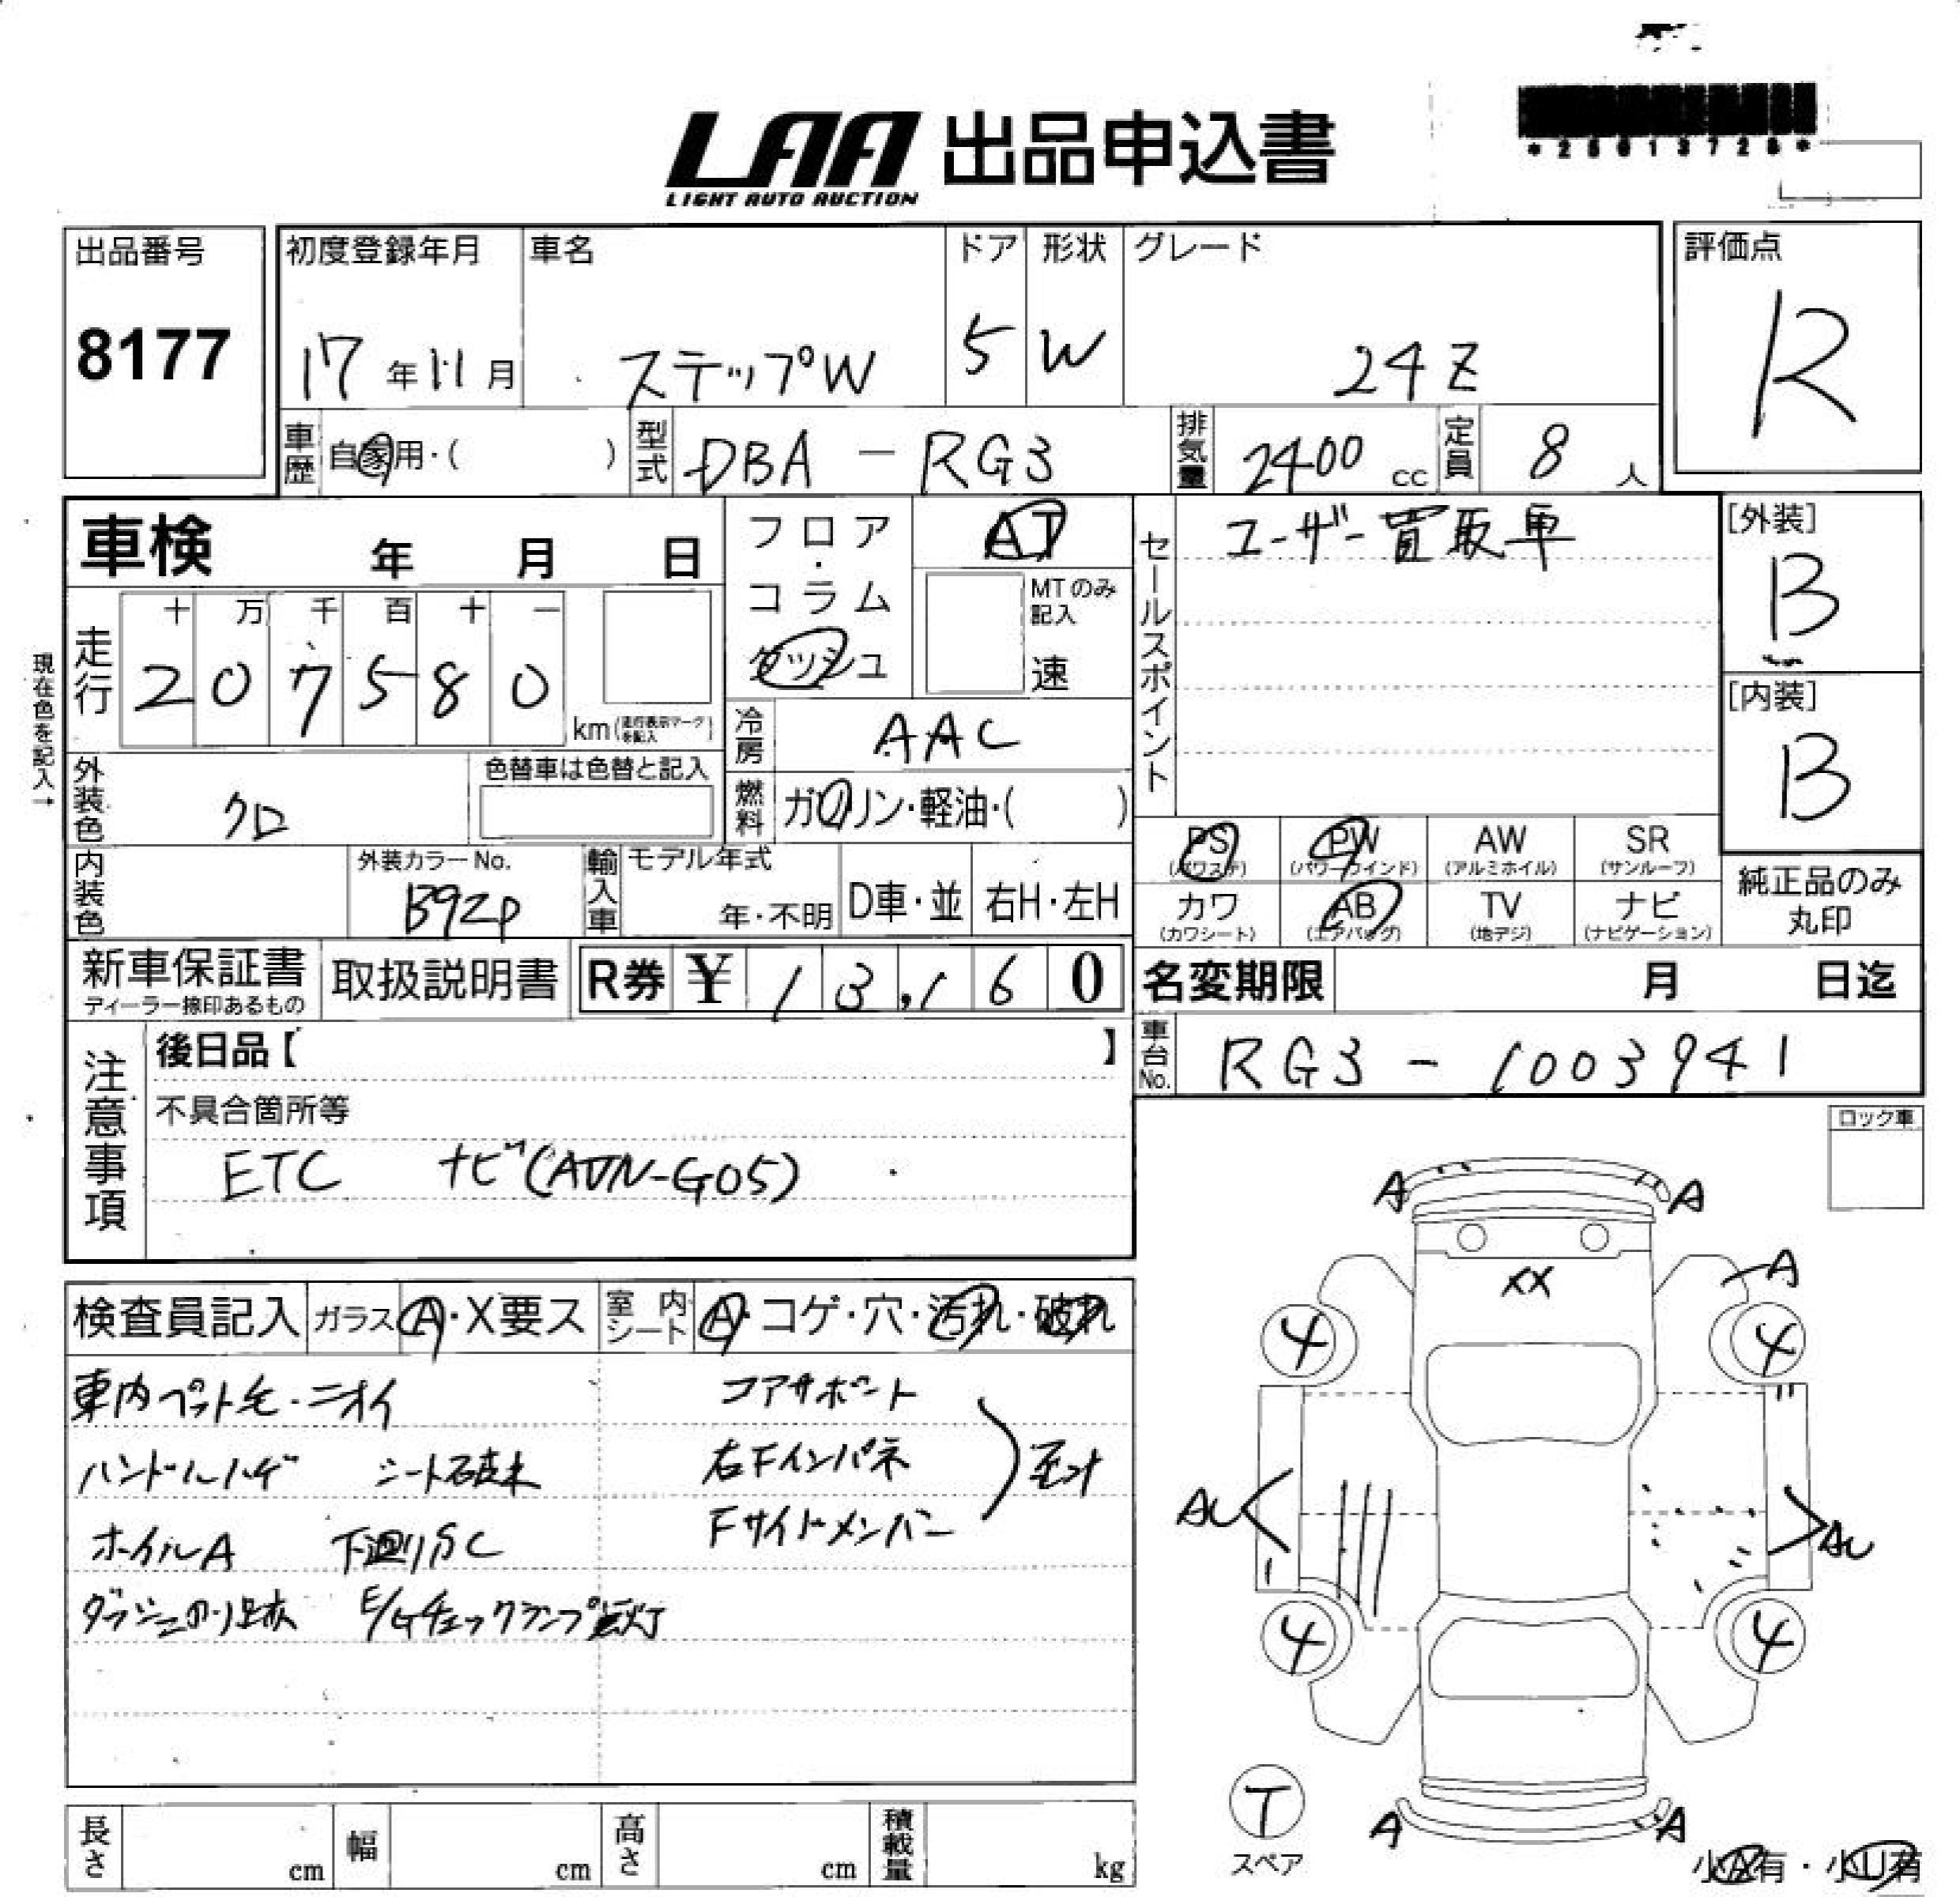 LAA 出品申込書
LIGHT AUTO AUCTION
*25013728*
出品番号
8177
初度登録年月
17年11月
車名
ステップW
ドア
5
形状
W
グレード
24Z
評価点
R
車歴 自家用・( )
型式 DBA-RG3
排気量 2400 cc
定員 8 人
車検 年 月 日
フロア・コラム ダッシュ
AT
MTのみ記入
速
セールスポイント
ユーザー買取車
[外装]
B
[内装]
B
現在色を記入→
走行
十 万 千 百 十 一
2 0 7 5 8 0
km(走行表示マークを記入)
冷房 AAC
燃料 ガソリン・軽油・( )
外装色 クロ
色替車は色替と記入
内装色
外装カラーNo.
B92P
輸入車
モデル年式
年・不明
D車・並
右H・左H
PS (パワステ)
PW (パワーウインド)
AW (アルミホイル)
SR (サンルーフ)
カワ (カワシート)
AB (エアバッグ)
TV (地デジ)
ナビ (ナビゲーション)
純正品のみ丸印
新車保証書
ディーラー捺印あるもの
取扱説明書
R券 ¥ 13,160
名変期限 月 日迄
車台No. RG3-1003941
注意事項
後日品【 】
不具合箇所等
ETC ナビ(AVN-G05)
ロック車
検査員記入
ガラス A・X要ス
室内シート A・コゲ・穴・汚れ・破れ
車内ペット毛・ニオイ
ハンドルハゲ シート破レ
ホイルA 下廻りSC
ダッシュのり跡 E/Gチェックランプ点灯
コアサポート
右Fインパネ
Fサイドメンバー
A A
XX
A
4 4
AU AU
4 4
T
スペア
A A
小A有・小U有
長さ cm
幅 cm
高さ cm
積載量 kg